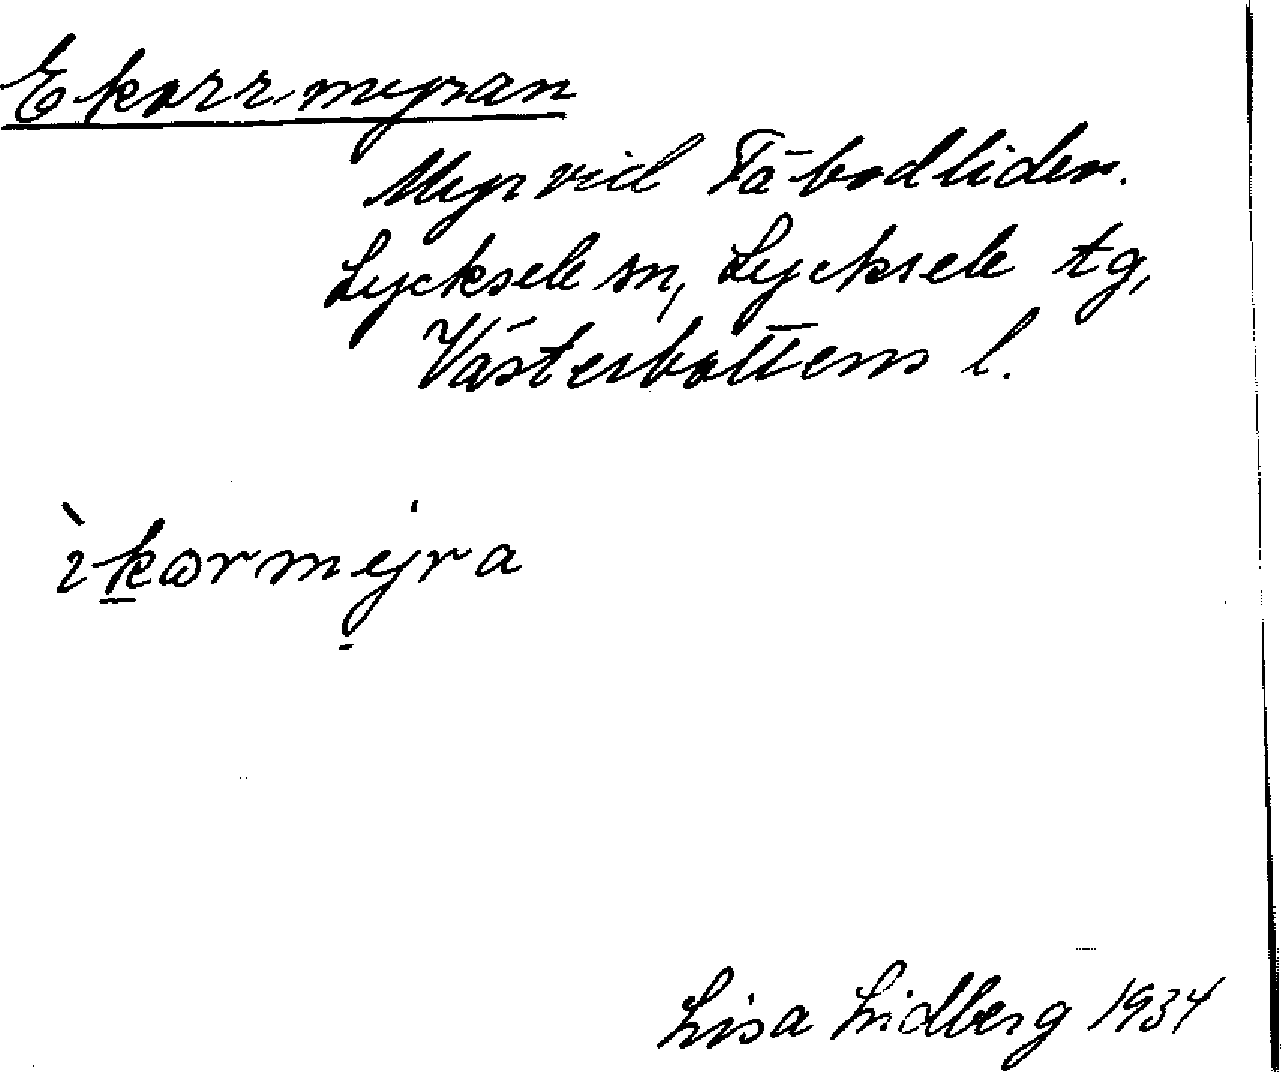 Ekorrmyran
Myr vid Fäbodliden.
Lycksele sn, Lycksele tg,
Västerbottens l.
ìkormejra
Lisa Lidberg 1934